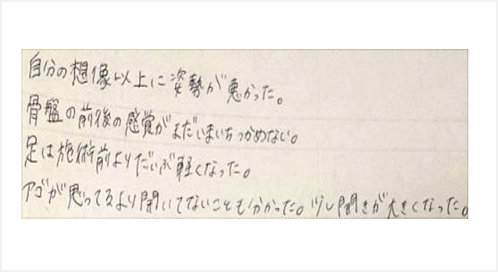 自分の想像以上に姿勢が悪かった。
骨盤の前後の感覚がまだいまいちつかめない。
足は施術前よりだいぶ軽くなった。
アゴが思ってるより開いてないことも分かった。少し開きが大きくなった。